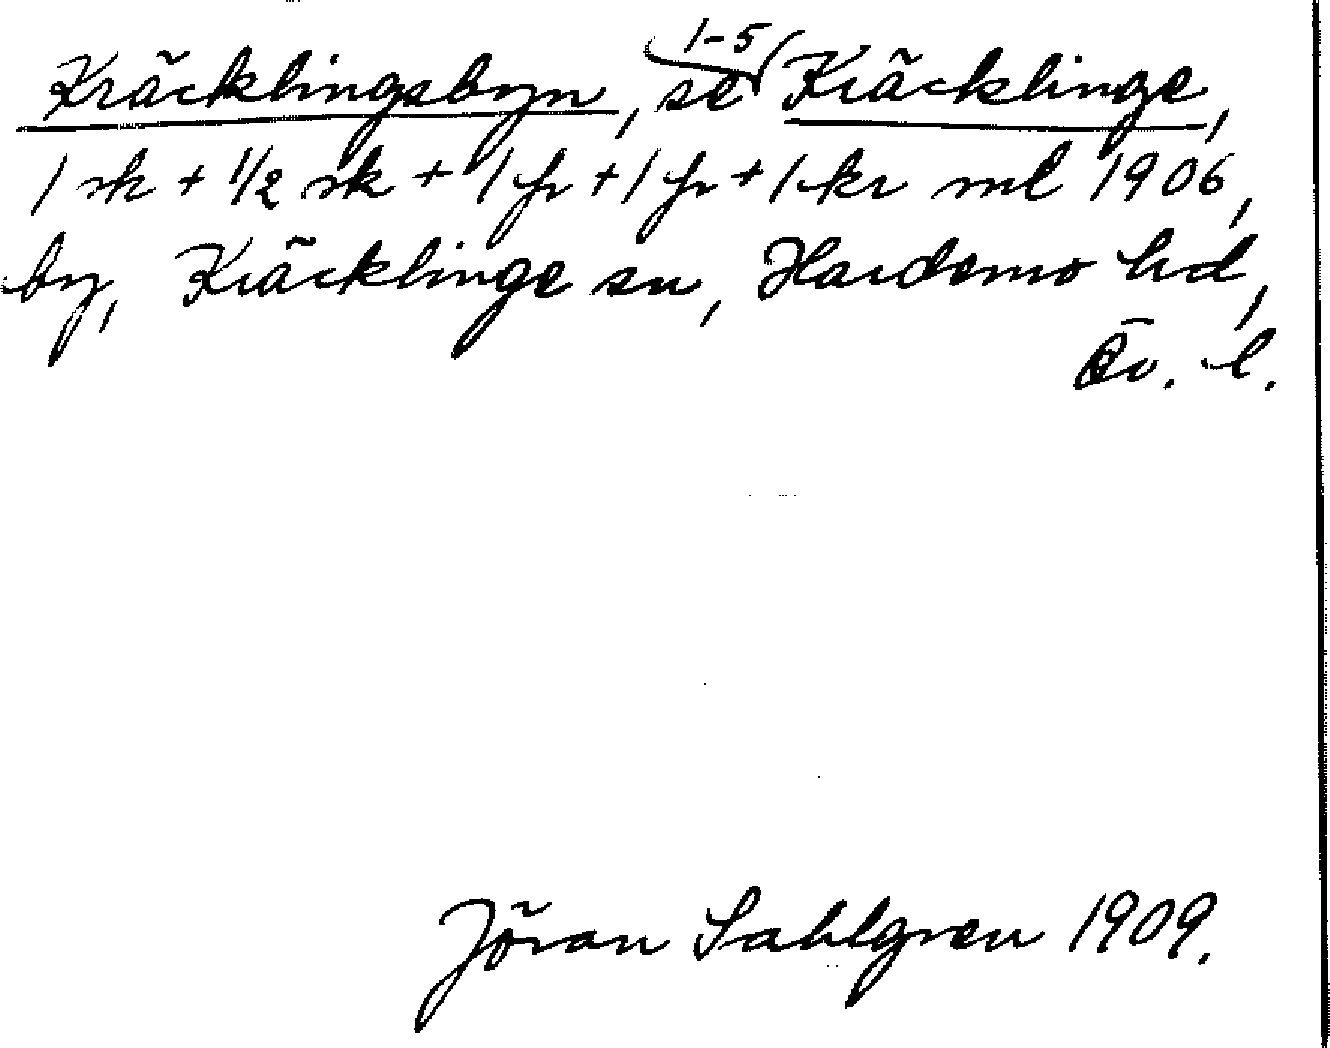 Kräcklingsbyn, se 1-5 Kräcklinge,
1 sk + 1/2 sk + 1 fr + 1 fr + 1 kr ml 1906,
by, Kräcklinge sn, Hardemo hd,
Ö. l.
Jöran Sahlgren 1909.